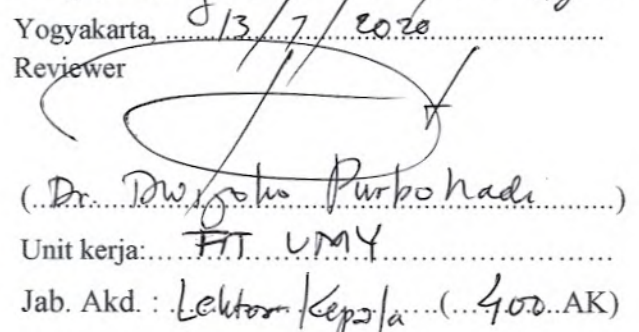 Yogyakarta, 13/7/2020
Reviewer
(Dr. Dwijoko Purbohadi)
Unit kerja: FT UMY
Jab. Akd. : Lektor Kepala (400 AK)